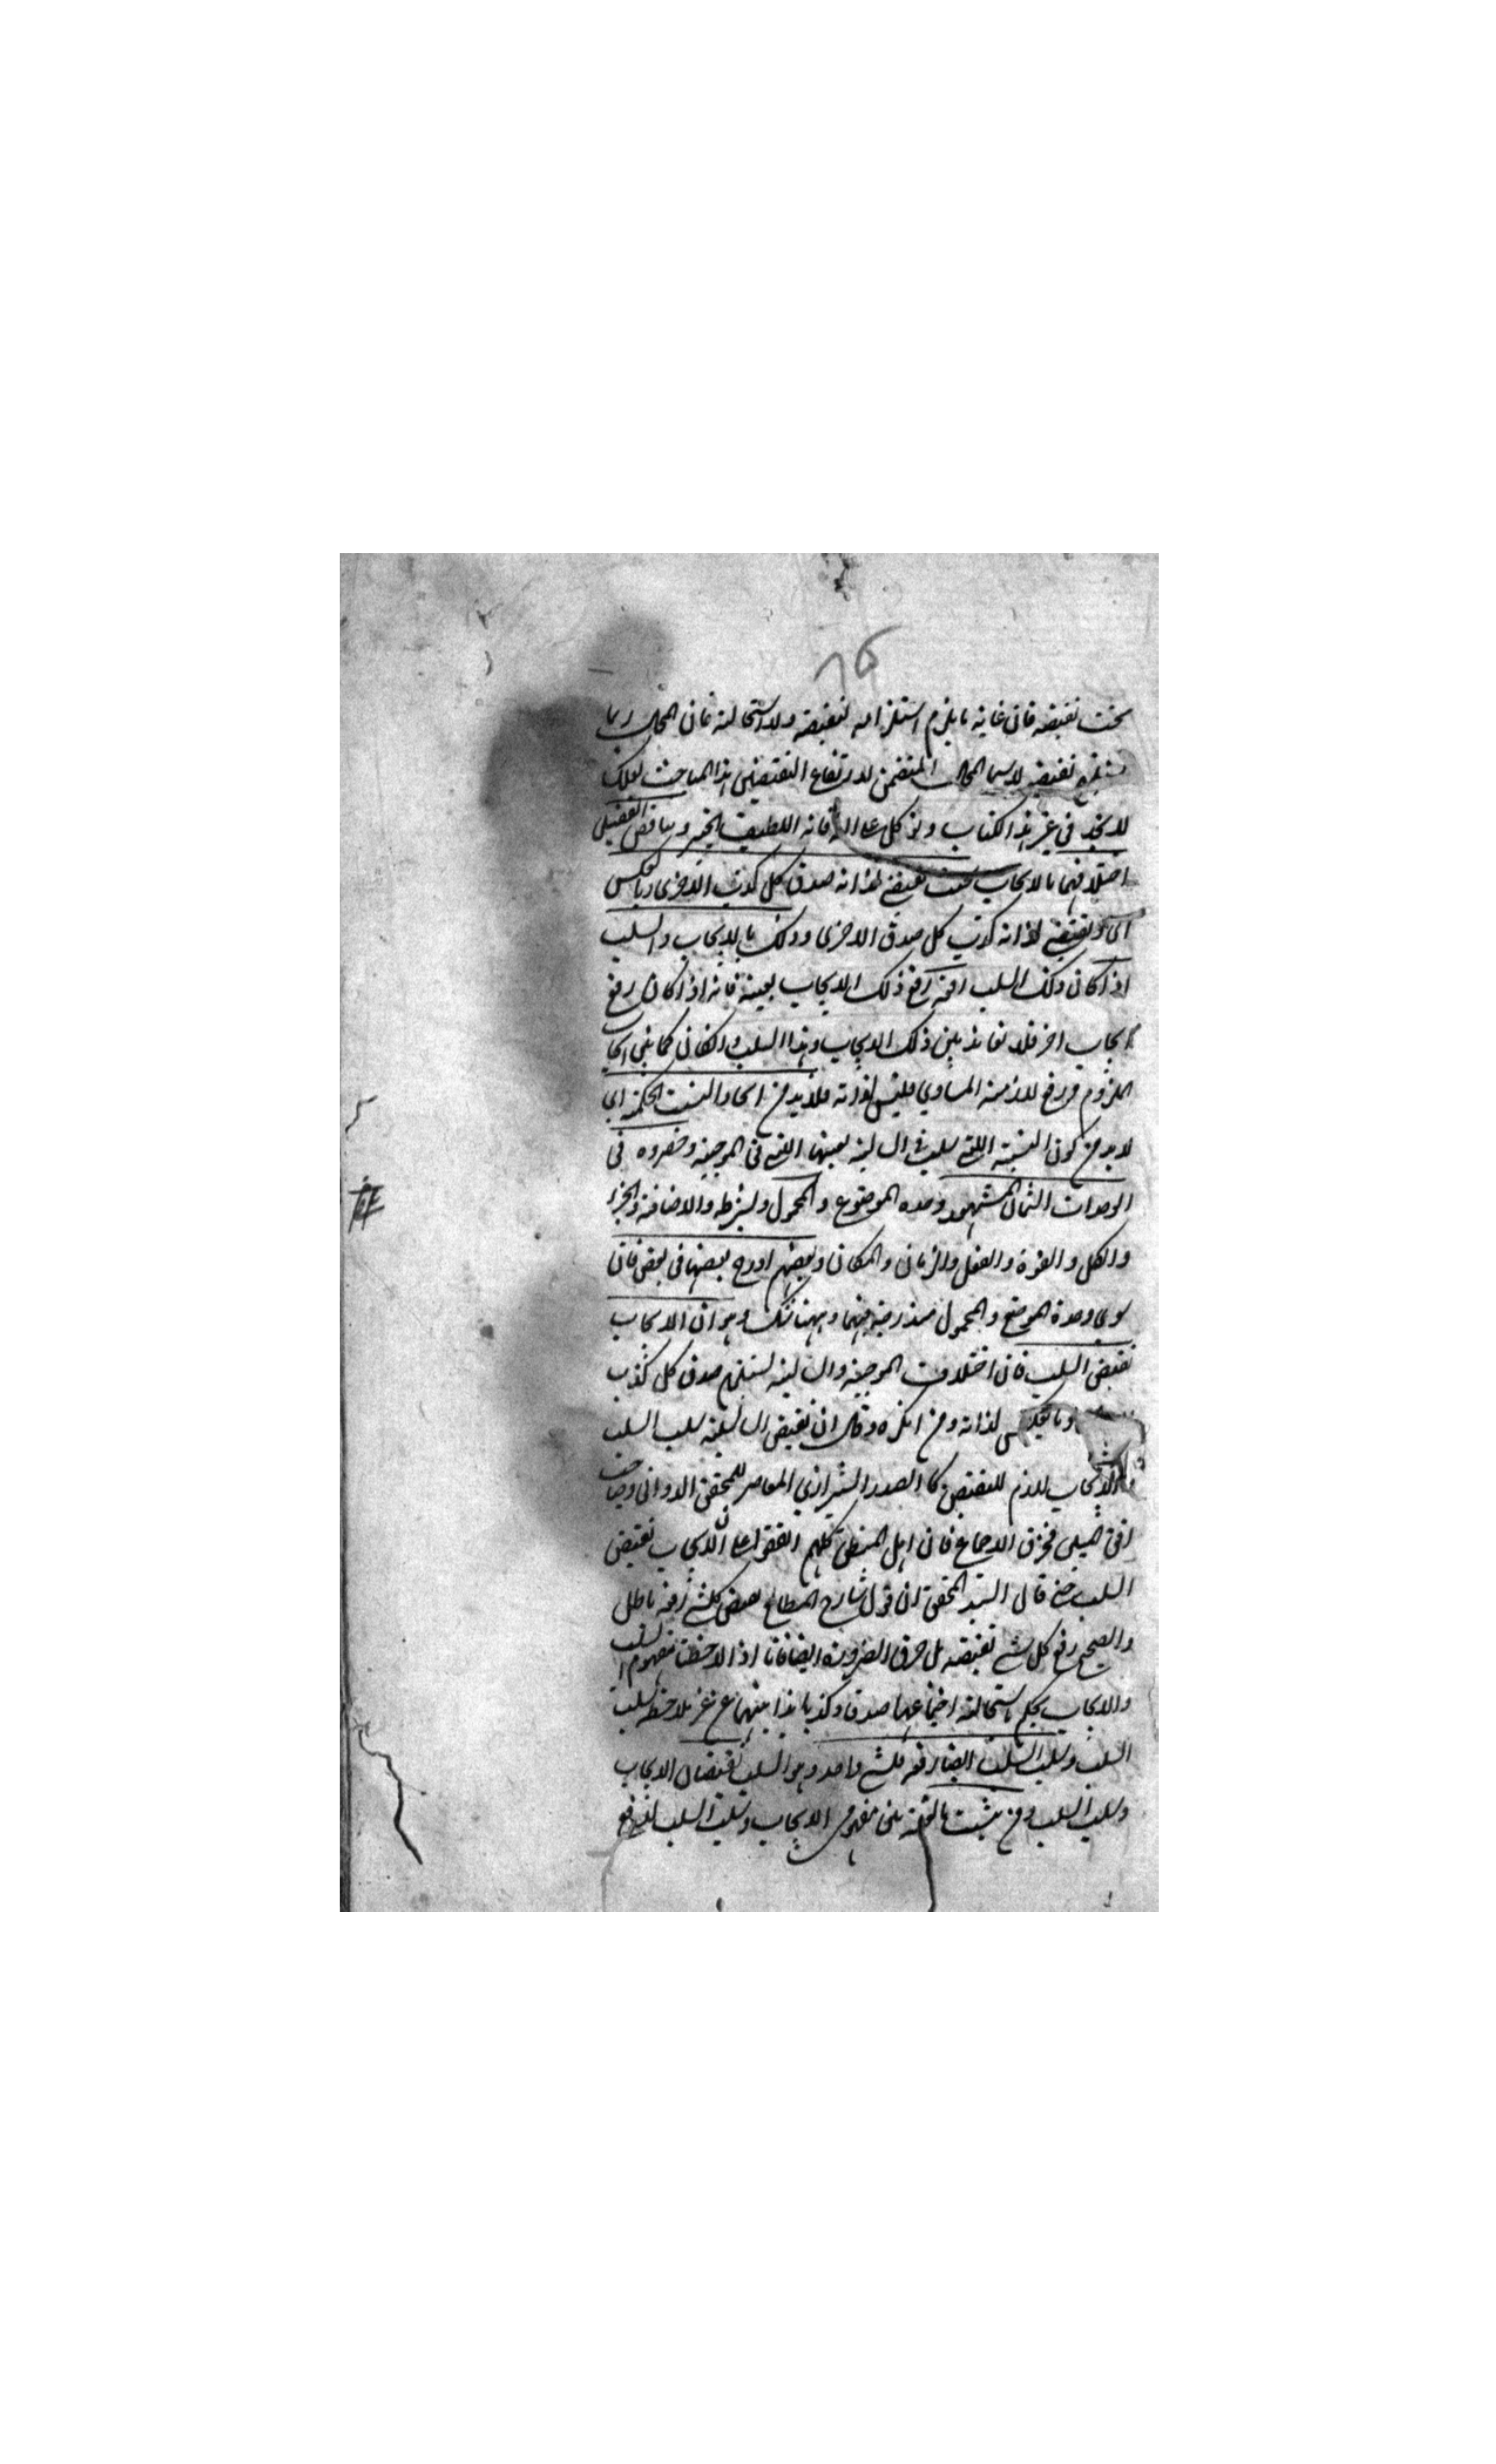 تحت نقيضه فان غاية ما يلزم استلزامه لنقيضه ولا استحالة فان المحال ربما
يستلزم نقيضه لا سيما المحال المتضمن لارتفاع النقيضين هذا المباحث لعلك
لا تجد في غير هذا الكتاب وتوكل على الله فانه اللطيف الخبير وتناقض القضيتين
اختلافهما بالايجاب بحيث يقتضي لذاته صدق كل كذب الاخرى وبالعكس
اى ويقتضي لذاته كذب كل صدق الاخرى وذلك بالايجاب والسلب
اذا كان ذلك السلب رفع ذلك الايجاب بعينه فانه اذا كان رفع
ايجاب اخر فلا تعاند بين ذلك الايجاب وهذا السلب وان كان كما بين ايجاب
الملزوم ورفع لازمه المساوي فليس لذاته فلا بد من اتحاد النسبة الحكمية اي
لا بد من كون النسبة التي سلبت في السالبة بعينها التي في الموجبة وحصروه في
الوحدات الثمان المشهور وحدة الموضوع والمحمول والشرط والاضافة والجزء
والكل والقوة والفعل والزمان والمكان وبعضهم ادرج بعضها في بعض فان
سوى وحدة الموضوع والمحمول مندرجة فيهما وههنا شك وهو ان الايجاب
نقيض السلب فان اختلاف الموجبة والسالبة يستلزم صدق كل كذب
وبالعكس لذاته ومن انكره وقال ان نقيض السالبة سلب السلب
والايجاب لازم للنقيض كالصدر الشيرازي المعاصر للمحقق الدواني وصاحب
افق المبين فخرق الاجماع فان اهل المنطق كلهم اتفقوا على ان الايجاب نقيض
السلب حتى قال السيد المحقق ان قول شارح المطالع نقيض كل شئ رفعه باطل
والصحيح رفع كل شئ نقيضه بل خرق الضرورة ايضا فانا اذا لاحظنا مفهوم السلب
والايجاب نحكم باستحالة اجتماعهما صدقا وكذبا بذاتيهما من غير ملاحظة سلب
السلب وسلب السلب ايضا رفعه فلشئ واحد وهو السلب نقيضان الايجاب
وسلب السلب ومن تشبث بالعينية بين مفهومي الايجاب وسلب السلب لدفع